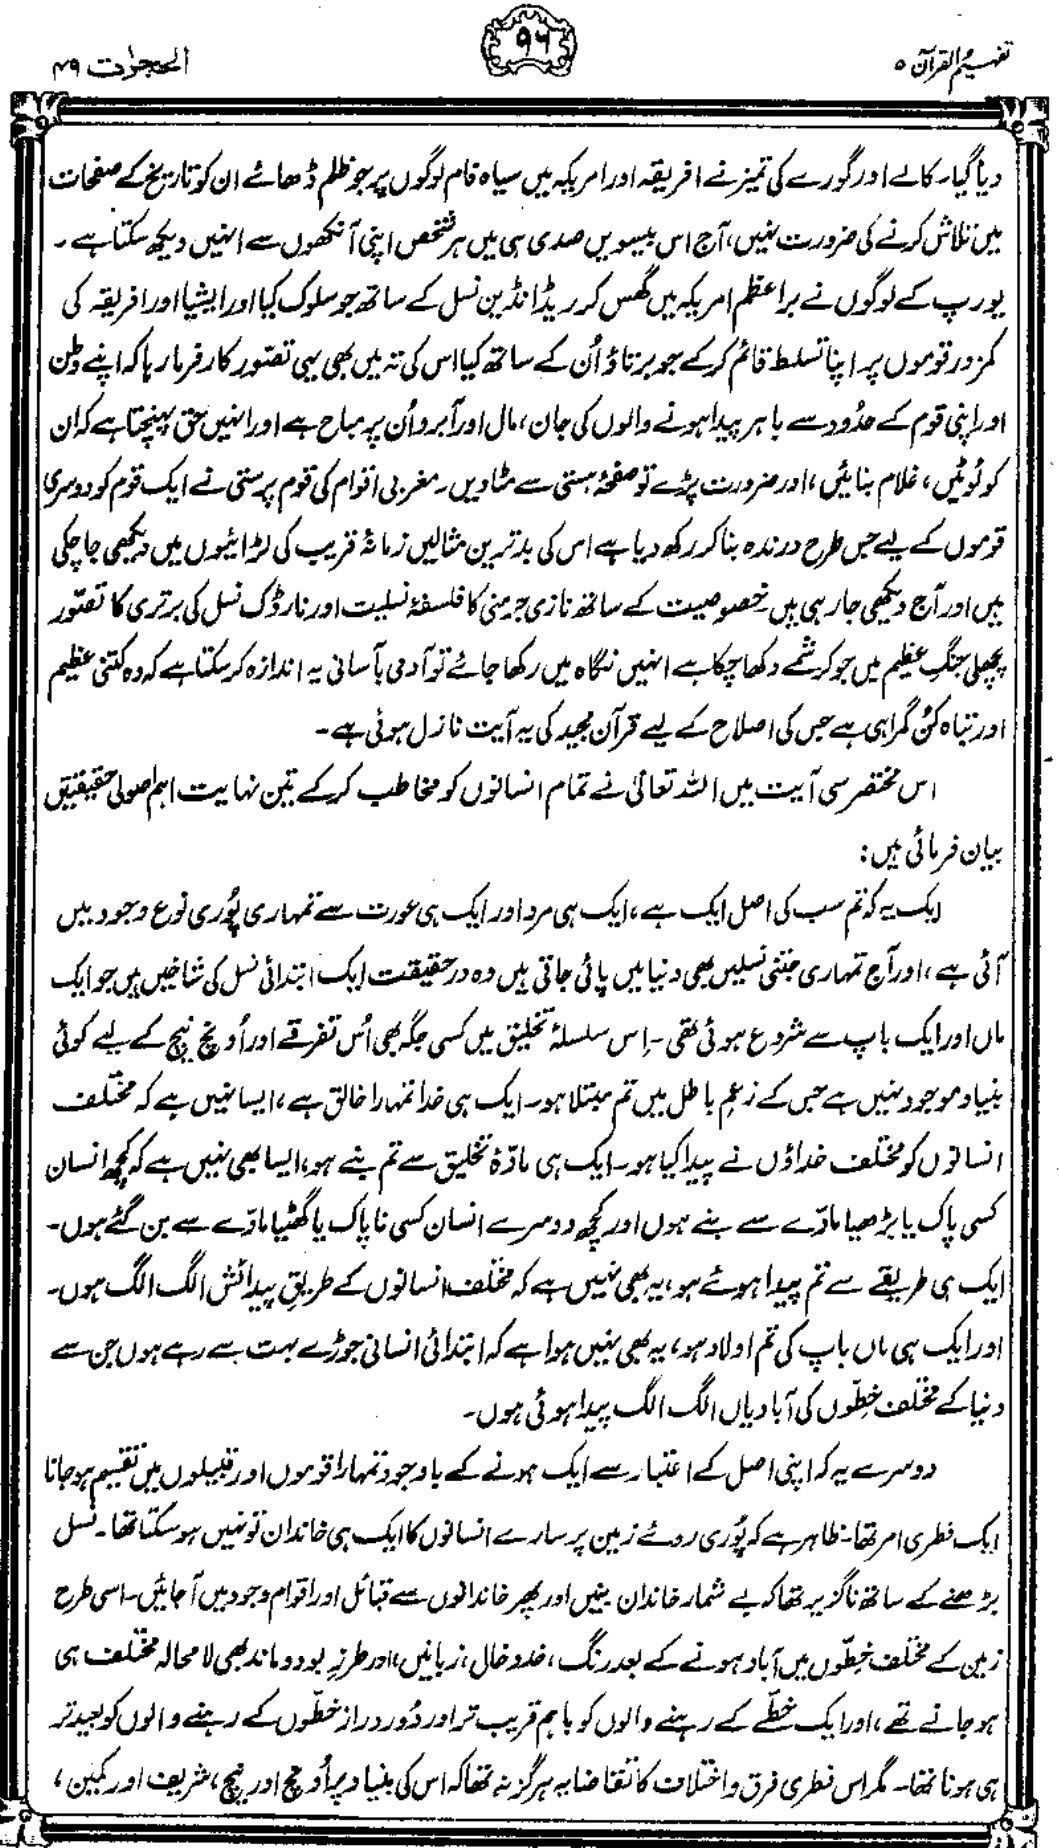 تفہیم القرآن ۵
۹۶
الحجرات ۴۹
دیا گیا۔ کالے اور گورے کی تمیز نے افریقہ اور امریکہ میں سیاہ فام لوگوں پر جو ظلم ڈھائے ان کو تاریخ کے صفحات
میں تلاش کرنے کی ضرورت نہیں، آج اس بیسویں صدی ہی میں ہر شخص اپنی آنکھوں سے انہیں دیکھ سکتا ہے۔
یورپ کے لوگوں نے براعظم امریکہ میں گھس کر ریڈ انڈین نسل کے ساتھ جو سلوک کیا اور ایشیا اور افریقہ کی
کمزور قوموں پر اپنا تسلط قائم کرکے جو برتاؤ اُن کے ساتھ کیا اس کی تہ میں بھی یہی تصّور کار فرما رہا کہ اپنے وطن
اور اپنی قوم کے حدُود سے باہر پیدا ہونے والوں کی جان، مال اور آبرو اُن پر مباح ہے اور انہیں حق پہنچتا ہے کہ ان
کو لُوٹیں، غلام بنائیں، اور ضرورت پڑے تو صفحۂ ہستی سے مٹا دیں۔ مغربی اقوام کی قوم پرستی نے ایک قوم کو دوسری
قوموں کے لیے جس طرح درندہ بنا کر رکھ دیا ہے اس کی بدترین مثالیں زمانۂ قریب کی لڑائیوں میں دیکھی جا چکی
ہیں اور آج دیکھی جا رہی ہیں۔ خصوصیت کے ساتھ نازی جرمنی کا فلسفۂ نسلیت اور نارڈک نسل کی برتری کا تصّور
پچھلی جنگِ عظیم میں جو کرشمے دکھا چکا ہے انہیں نگاہ میں رکھا جائے تو آدمی بآسانی یہ اندازہ کرسکتا ہے کہ وہ کتنی عظیم
اور تباہ کُن گمراہی ہے جس کی اصلاح کے لیے قرآن مجید کی یہ آیت نازل ہوئی ہے۔
اس مختصر سی آیت میں اللہ تعالیٰ نے تمام انسانوں کو مخاطب کرکے تین نہایت اہم اصولی حقیقتیں
بیان فرمائی ہیں:
ایک یہ کہ تم سب کی اصل ایک ہے، ایک ہی مرد اور ایک ہی عورت سے تمہاری پُوری نوع وجود میں
آئی ہے، اور آج تمہاری جتنی نسلیں بھی دنیا میں پائی جاتی ہیں وہ درحقیقت ایک ابتدائی نسل کی شاخیں ہیں جو ایک
ماں اور ایک باپ سے شروع ہوئی تھی۔ اِس سلسلۂ تخلیق میں کسی جگہ بھی اُس تفرقے اور اُونچ نیچ کے لیے کوئی
بنیاد موجود نہیں ہے جس کے زعمِ باطل میں تم مبتلا ہو۔ ایک ہی خدا تمہارا خالق ہے، ایسا نہیں ہے کہ مختلف
انسانوں کو مختلف خداؤں نے پیدا کیا ہو۔ ایک ہی مادّۂ تخلیق سے تم بنے ہو، ایسا بھی نہیں ہے کہ کچھ انسان
کسی پاک یا بڑھیا مادّے سے بنے ہوں اور کچھ دوسرے انسان کسی ناپاک یا گھٹیا مادّے سے بن گئے ہوں۔
ایک ہی طریقے سے تم پیدا ہوئے ہو، یہ بھی نہیں ہے کہ مختلف انسانوں کے طریقِ پیدائش الگ الگ ہوں۔
اور ایک ہی ماں باپ کی تم اولاد ہو، یہ بھی نہیں ہوا ہے کہ ابتدائی انسانی جوڑے بہت سے رہے ہوں جن سے
دنیا کے مختلف خطّوں کی آبادیاں الگ الگ پیدا ہوئی ہوں۔
دوسرے یہ کہ اپنی اصل کے اعتبار سے ایک ہونے کے باوجود تمہارا قوموں اور قبیلوں میں تقسیم ہو جانا
ایک فطری امر تھا۔ ظاہر ہے کہ پُوری روئے زمین پر سارے انسانوں کا ایک ہی خاندان تو نہیں ہو سکتا تھا۔ نسل
بڑھنے کے ساتھ ناگزیر تھا کہ بے شمار خاندان بنیں اور پھر خاندانوں سے قبائل اور اقوام وجود میں آ جائیں۔ اسی طرح
زمین کے مختلف خطّوں میں آباد ہونے کے بعد رنگ، خدوخال، زبانیں، اور طرزِ بود و ماند بھی لامحالہ مختلف ہی
ہو جانے تھے، اور ایک خطّے کے رہنے والوں کو باہم قریب تر اور دُور دراز خطّوں کے رہنے والوں کو بعید تر
ہی ہونا تھا۔ مگر اس فطری فرق و اختلاف کا تقاضا یہ ہرگز نہ تھا کہ اس کی بنیاد پر اُونچ اور نیچ، شریف اور کمین،